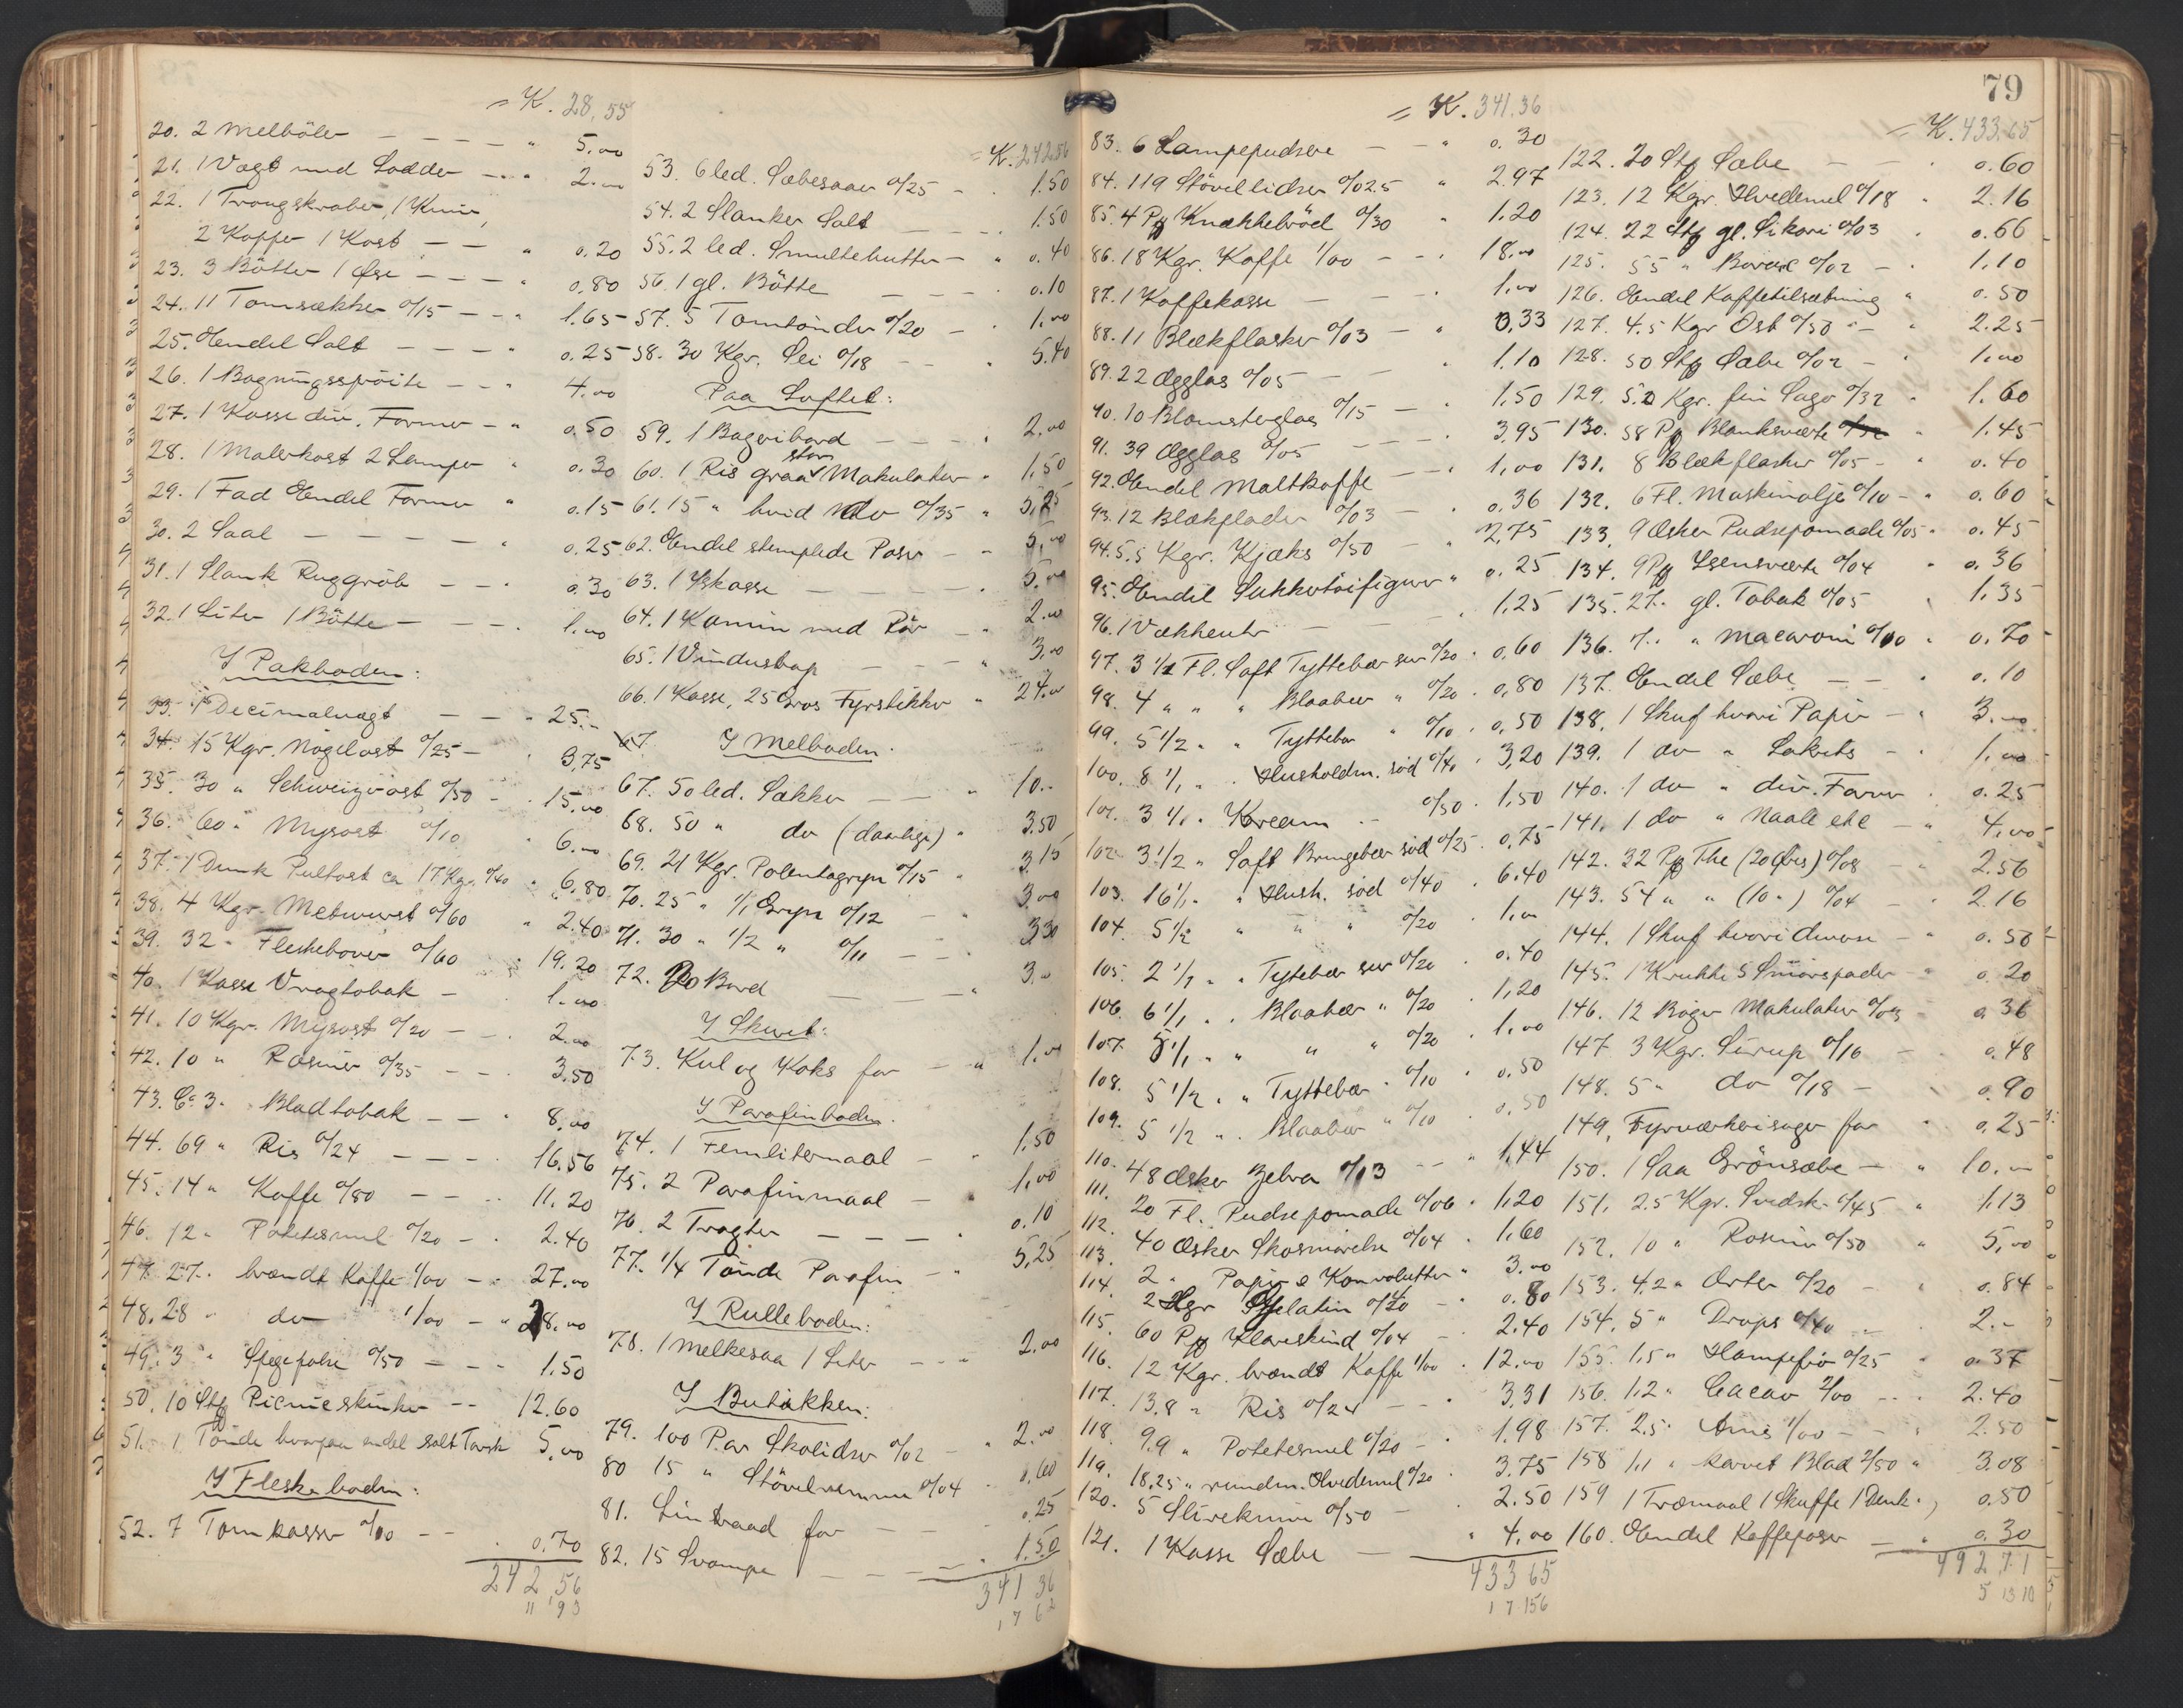 = K. 28,55
20. 2 Melböler - - - " 5.00
21. 1 Vægt med Lodder - - " 2.00
22. 1 Trougskraber, 1 Kniv,
2 Kopper 1 Kost - - " 0.20
23. 3 Bötter 1 Øse - - - " 0.80
24. 11 Tomsækker %15 - - " 1.65
25. Endel Salt - - - " 0.25
26. 1 Bagningsspröite - - " 4.00
27. 1 Kasse div. Former - " 0.50
28. 1 Malerkost 2 Lamper " 0.30
29. 1 Fad Endel Former " 0.15
30. 2 Saal - - - - " 0.25
31. 1 Slank Ruggröb - - " 0.30
32. 1 Liter 1 Bötte - - - . 1.00
I Pakboden:
33. 1 Decimalvægt - - - 25.-
34. 15 Kgr. Nögelost %25 - " 3,75
35. 30 " Schweizerost %50 - . 15.00
36. 60 " Mysost %10 " 6.00
37. 1 Dunk Pultost ca 17 Kgr. %40 " 6.80
38. 4 Kgr. Metwurst %60 " 2.40
39. 32 " Fleskebover %60 " 19.20
40. 1 Kasse Vragtobak - . 1.00
41. 10 Kgr. Mysost %20 - - . 2.00
42. 10 " Rosiner %35 - - . 3.50
43. Ca 3 " Bladtobak - - " 8.00
44. 69 " Ris %24 - - - . 16.56
45. 14 " Kaffe %80 - - . 11.20
46. 12 " Potetesmel %20 - . 2.40
47. 27 " brændt Kaffe 1/00 - " 27.00
48. 28 " do 1/00 - " 28.00
49. 3 " Spegepölse %50 - - - 1.50
50. 10 Stk Picnicskinker - - 12.60
51. 1 Tönde hvorpaa endel salt Torsk 5.00
I Fleskeboden:
52. 7 Tomkasser %10 - - . 0.70
242,56
11 93
= K. 242.56
53. 6 led. Sæbesaaer %25 - . 1.50
54. 2 Slanker Salt - - - . 1.50
55. 2 led. Smultebutter - " 0.40
56. 1 gl. Bötte - - - . 0.10
57. 5 Tomtönder %20 - . 1.00
58. 30 Kgr. Sei %18 - " 5.40
Paa Loftet:
59. 1 Bageribord - - - . 2.00
60. 1 Ris graa stor Makulatur " 1.50
61. 15 " hvid do %35 " 5,25
62. Endel stemplede Poser - - 5.00
63. 1 Iskasse - - - - . 5.00
64. 1 Kamin med Rör - " 2.00
65. 1 Vinduskap - - - " 3.00
66. 1 Kasse, 25 Gros Fyrstikker " 24.00
67 I Melboden.
67. 50 led. Sækker - - " 10.-
68. 50 " do (daarlige) " 3.50
69. 21 Kgr. Polentagryn %15 " 3.15
70. 25 " 1/1 Gryn %12 - " 3.00
71. 30 " 1/2 " %11 - - 3.30
72. 20 Bord - - - " 3.00
I Skuret:
73. Kul og Koks for - " 1.00
I Parafinboden.
74. 1 Femlitermaal - " 1.50
75. 2 Parafinmaal - " 1.00
76. 2 Tragter - - - . 0.10
77. 1/4 Tönde Parafin - " 5,25
I Rulleboden:
78. 1 Melkesaa 1 Liter - - " 2.00
I Butikken:
79. 100 Par Skolidser %02 - " 2.00
80 15 " Stövelremmer %04 . 0.60
81. Lintraad for - - - 0.25
82. 15 Svamper - - - . 1.50
341 36
1 7 62
79
= K. 341.36
83. 6 Lampepudsere - - " 0.30
84. 119 Stövellidser %02.5 " 2.97
85. 4 Pk Knækkebröd %30 " 1.20
86. 18 Kgr. Kaffe 1/00 - - . 18.00
87. 1 Kaffekasse - - - . 1.00
88. 11 Blækflasker %03 - " 0,33
89. 22 Ægglas %05 - - . 1.10
90. 10 Blomsterglas %15 - . 1.50
91. 39 Ægglas %05 - - - . 3.95
92. Endel Maltkaffe - - . 1,00
93. 12 Blækflader %03 - . 0.36
94. 5.5 Kgr. Kjæks %50 - " 2,75
95. Endel Sukkertöifigurer " 0.25
96. 1 Vækkeuhr - - - . 1,25
97. 3 1/2 Fl. Saft Tyttebær sur %20 . 0,60
98. 4 " " " Blaabær " %20 . 0,80
99. 5 1/2 " " Tyttebær " %10 . 0,50
100. 8 1/1 " . Husholdn. söd %40 . 3,20
101. 3 1/1 " Kream - - %50 . 1,50
102. 3 1/2 " Saft Bringebær söd %25 . 0,75
103. 16 1/1 " " Hush. söd %40 . 6.40
104. 5 1/2 " " " %20 . 1.00
105. 2 1/1 " " Tyttebær sur %20 . 0.40
106. 6 1/1 . . Blaabær " %20 . 1,20
107. 5 1/1 " " " " %20 . 1.00
108. 5 1/2 . " Tyttebær " %10 . 0.50
109. 5 1/2 " . Blaabær " %10 . 0.50
110. 48 Æsker Zebra %03 - - " 1.44
111. 20 Fl. Pudsepomade %06 . 1,20
112. 40 Æsker Skosmörelse %04 . 1,60
113. 2 " Papir & Konvolutter " 3.00
114. 2 Hgr Gelatin %40 - . 0.80
115. 60 Pk Klareskind %04 - . 2.40
116. 12 Kgr. brændt Kaffe 1/00 . 12.00
117. 13.8 " Ris %24 - - " 3.31
118. 9.9 " Potetesmel %20 - . 1.98
119. 18,25 " rundm. Hvedemel %20 . 3.75
120. 5 Slirekniver %50 - . 2.50
121. 1 Kasse Sæbe - " 4.00
433 65
1 7 156
= K. 433.65
122. 20 Stk Sæbe - - . 0.60
123. 12 Kgr. Hvedemel %18 . 2.16
124. 22 Stk gl. Sikori %03 . 0.66
125. 55 " Borax %02 - . 1.10
126. Endel Kaffetilsætning " 0.50
127. 4.5 Kgr Ost %50 - " 2.25
128. 50 Stk Sæbe %02 - " 1.00
129. 5.0 Kgr. fin Sago %32 " 1.60
130. 58 Pk Blanksværte " 1.45
131. 8 Blækflasker %05 - " 0.40
132. 6 Fl. Maskinolje %10 - " 0.60
133. 9 Æsker Pudsepomade %05 . 0.45
134. 9 Pk Isensværte %04 " 0.36
135. 27 " gl. Tobak %05 " 1.35
136. 7 " " Macaroni %10 . 0.70
137. Endel Sæbe - - . 0.10
138. 1 Skuf hvori Papir - . 3.00
139. 1 do " Lakrits - . 1.00
140. 1 do " div. Farver . 0.25
141. 1 do " Naale etc - " 4.00
142. 32 Pk The (20 Öres) %08 - " 2.56
143. 54 " " (10 ") %04 - . 2.16
144. 1 Skuf hvori diverse - " 0.50
145. 1 Krukke 5 Smörspader - " 0.20
146. 12 Böger Makulatur %03 - 0.36
147. 3 Kgr. Sirup %16 - . 0.48
148. 5 " do %18 - . 0.90
149. Fyrværkerisager for " 0.25
150. 1 Saa Grönsæbe - " 10.-
151. 2.5 Kgr. Svedsk. %45 " 1.13
152. 10 " Rosiner %50 " 5,00
153. 4.2 " Ærter %20 - " 0.84
154. 5 " Drops %40 - . 2.-
155. 1.5 " Hampefrö %25 " 0.37
156. 1.2 " Cacao 2/00 - . . 2.40
157. 2.5 " Anis 1/00 - - " 2.50
158 1.1 " karvet Blad 2/80 " 3.08
159 1 Træmaal 1 Skuffe 1 Dunk . , 0.50
160. Endel Kaffeposer - " 0.30
492,71
5 13 10